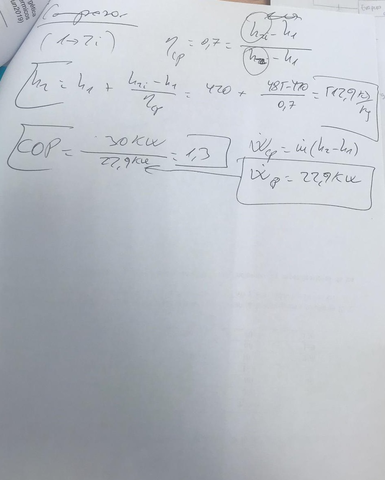 Compresor
(1→2i)
η_cp = 0,7 = (h_2i - h_1) / (h_2 - h_1)
h_2 = h_1 + (h_2i - h_1) / η_cp = 420 + (485-420) / 0,7 = 512,9 kJ/kg
COP = 30KW / 22,9KW = 1,3
ẇ_cp = ṁ(h_2-h_1)
ẇ_cp = 22,9KW